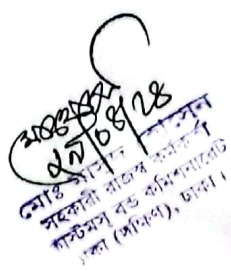 ২৯/০৪/২৪
মোঃ
সহকারী রাজস্ব কর্মকর্তা
কাস্টমস্ বন্ড কমিশনারেট
ঢাকা (দক্ষিণ), ঢাকা।